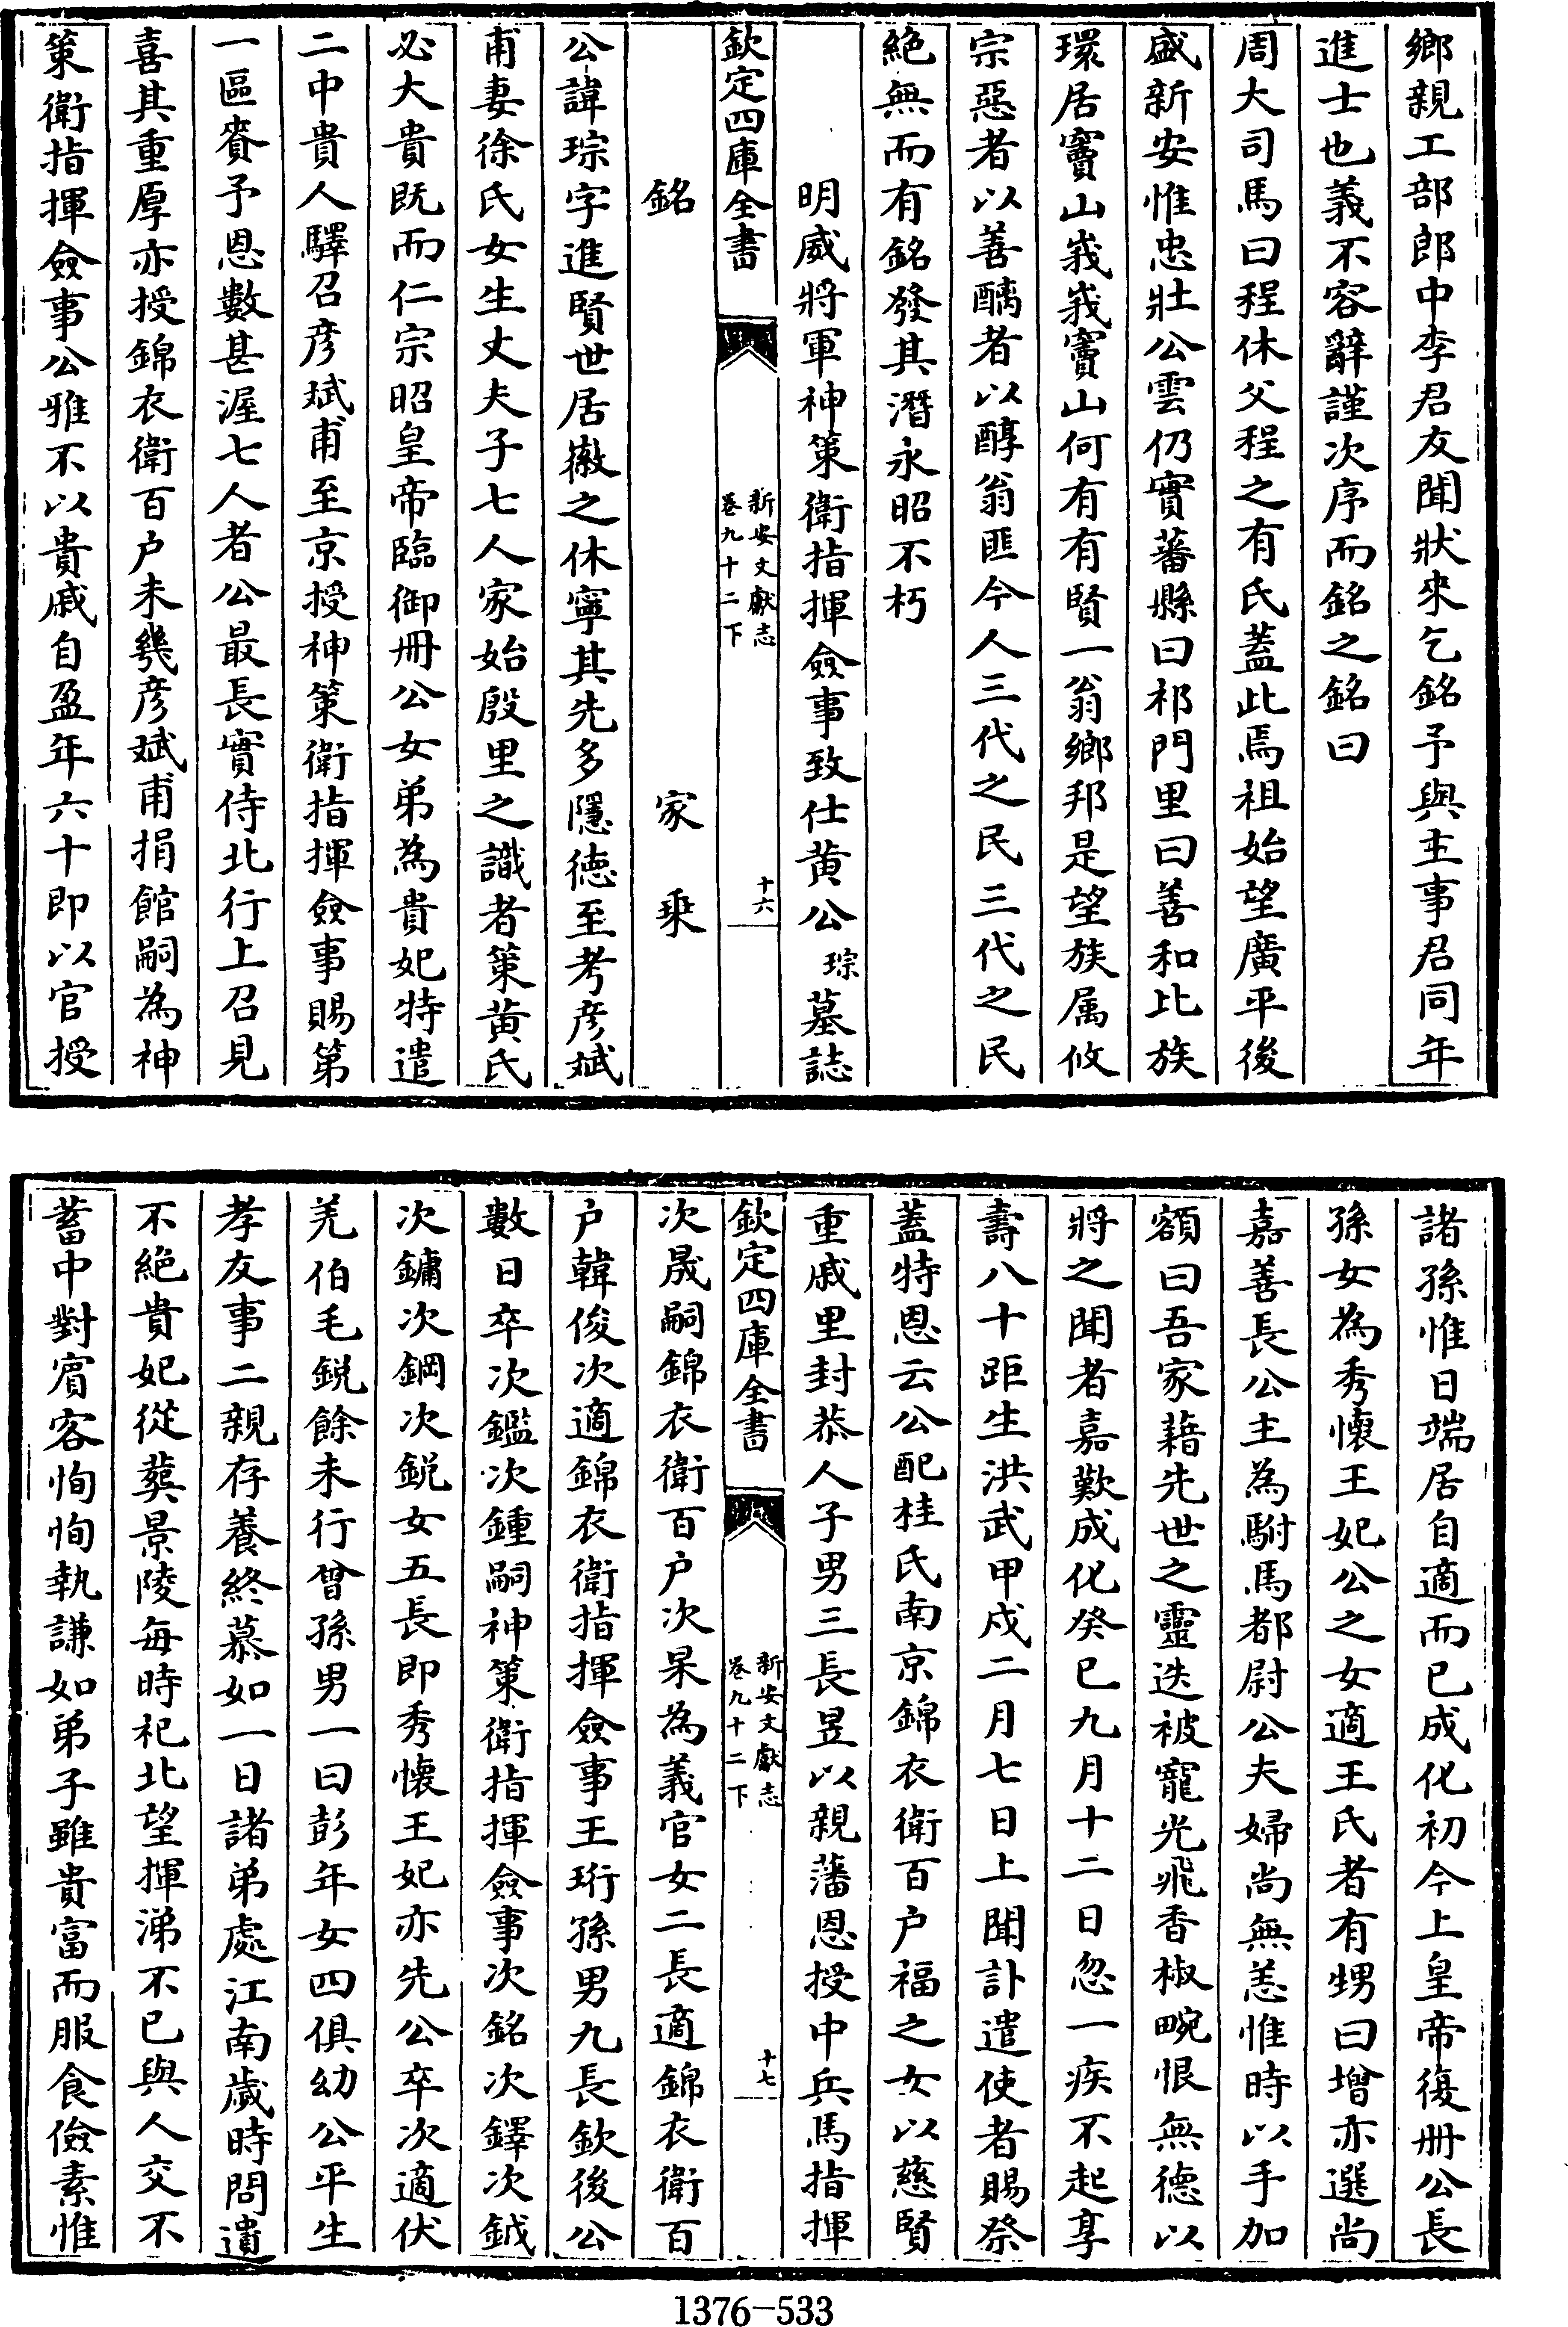 鄉親工部郎中李君友聞狀來乞銘予與主事君同年
進士也義不容辭謹次序而銘之銘曰
周大司馬曰程休父程之有氏蓋此焉祖始望廣平後
盛新安惟忠壯公雲仍實蕃縣曰祁門里曰善和比族
環居竇山峩峩竇山何有有賢一翁鄉邦是望族属攸
宗惡者以善醨者以醇翁匪今人三代之民三代之民
絶無而有銘發其潛永昭不朽
明威將軍神策衛指揮僉事致仕黄公琮墓誌
欽定四庫全書
新安文獻志
卷九十二下
十六
銘 家乗
公諱琮字進賢世居徽之休寧其先多隱徳至考彦斌
甫妻徐氏女生丈夫子七人家始殷里之識者策黄氏
必大貴既而仁宗昭皇帝臨御冊公女弟為貴妃特遣
二中貴人驛召彦斌甫至京授神策衛指揮僉事賜第
一區賚予恩數甚渥七人者公最長實侍北行上召見
喜其重厚亦授錦衣衛百户未幾彦斌甫捐館嗣為神
策衛指揮僉事公雅不以貴戚自盈年六十即以官授
諸孫惟日端居自適而已成化初今上皇帝復冊公長
孫女為秀懷王妃公之女適王氏者有甥曰增亦選尚
嘉善長公主為駙馬都尉公夫婦尚無恙惟時以手加
額曰吾家藉先世之靈迭被寵光飛香椒畹恨無德以
將之聞者嘉歎成化癸巳九月十二日忽一疾不起享
壽八十距生洪武甲戍二月七日上聞訃遣使者賜祭
蓋特恩云公配桂氏南京錦衣衛百户福之女以慈賢
重戚里封恭人子男三長昱以親藩恩授中兵馬指揮
欽定四庫全書
新安文獻志
卷九十二下
十七
次晟嗣錦衣衛百户次杲為義官女二長適錦衣衛百
户韓俊次適錦衣衛指揮僉事王珩孫男九長欽後公
數日卒次鑑次鍾嗣神策衛指揮僉事次銘次鐸次鉞
次鏞次鋼次鋭女五長即秀懷王妃亦先公卒次適伏
羌伯毛鋭餘未行曾孫男一曰彭年女四俱幼公平生
孝友事二親存養終慕如一日諸弟處江南歲時問遺
不絶貴妃從葬景陵每時祀北望揮涕不已與人交不
蓄中對賓客恂恂執謙如弟子雖貴富而服食儉素惟
1376-533